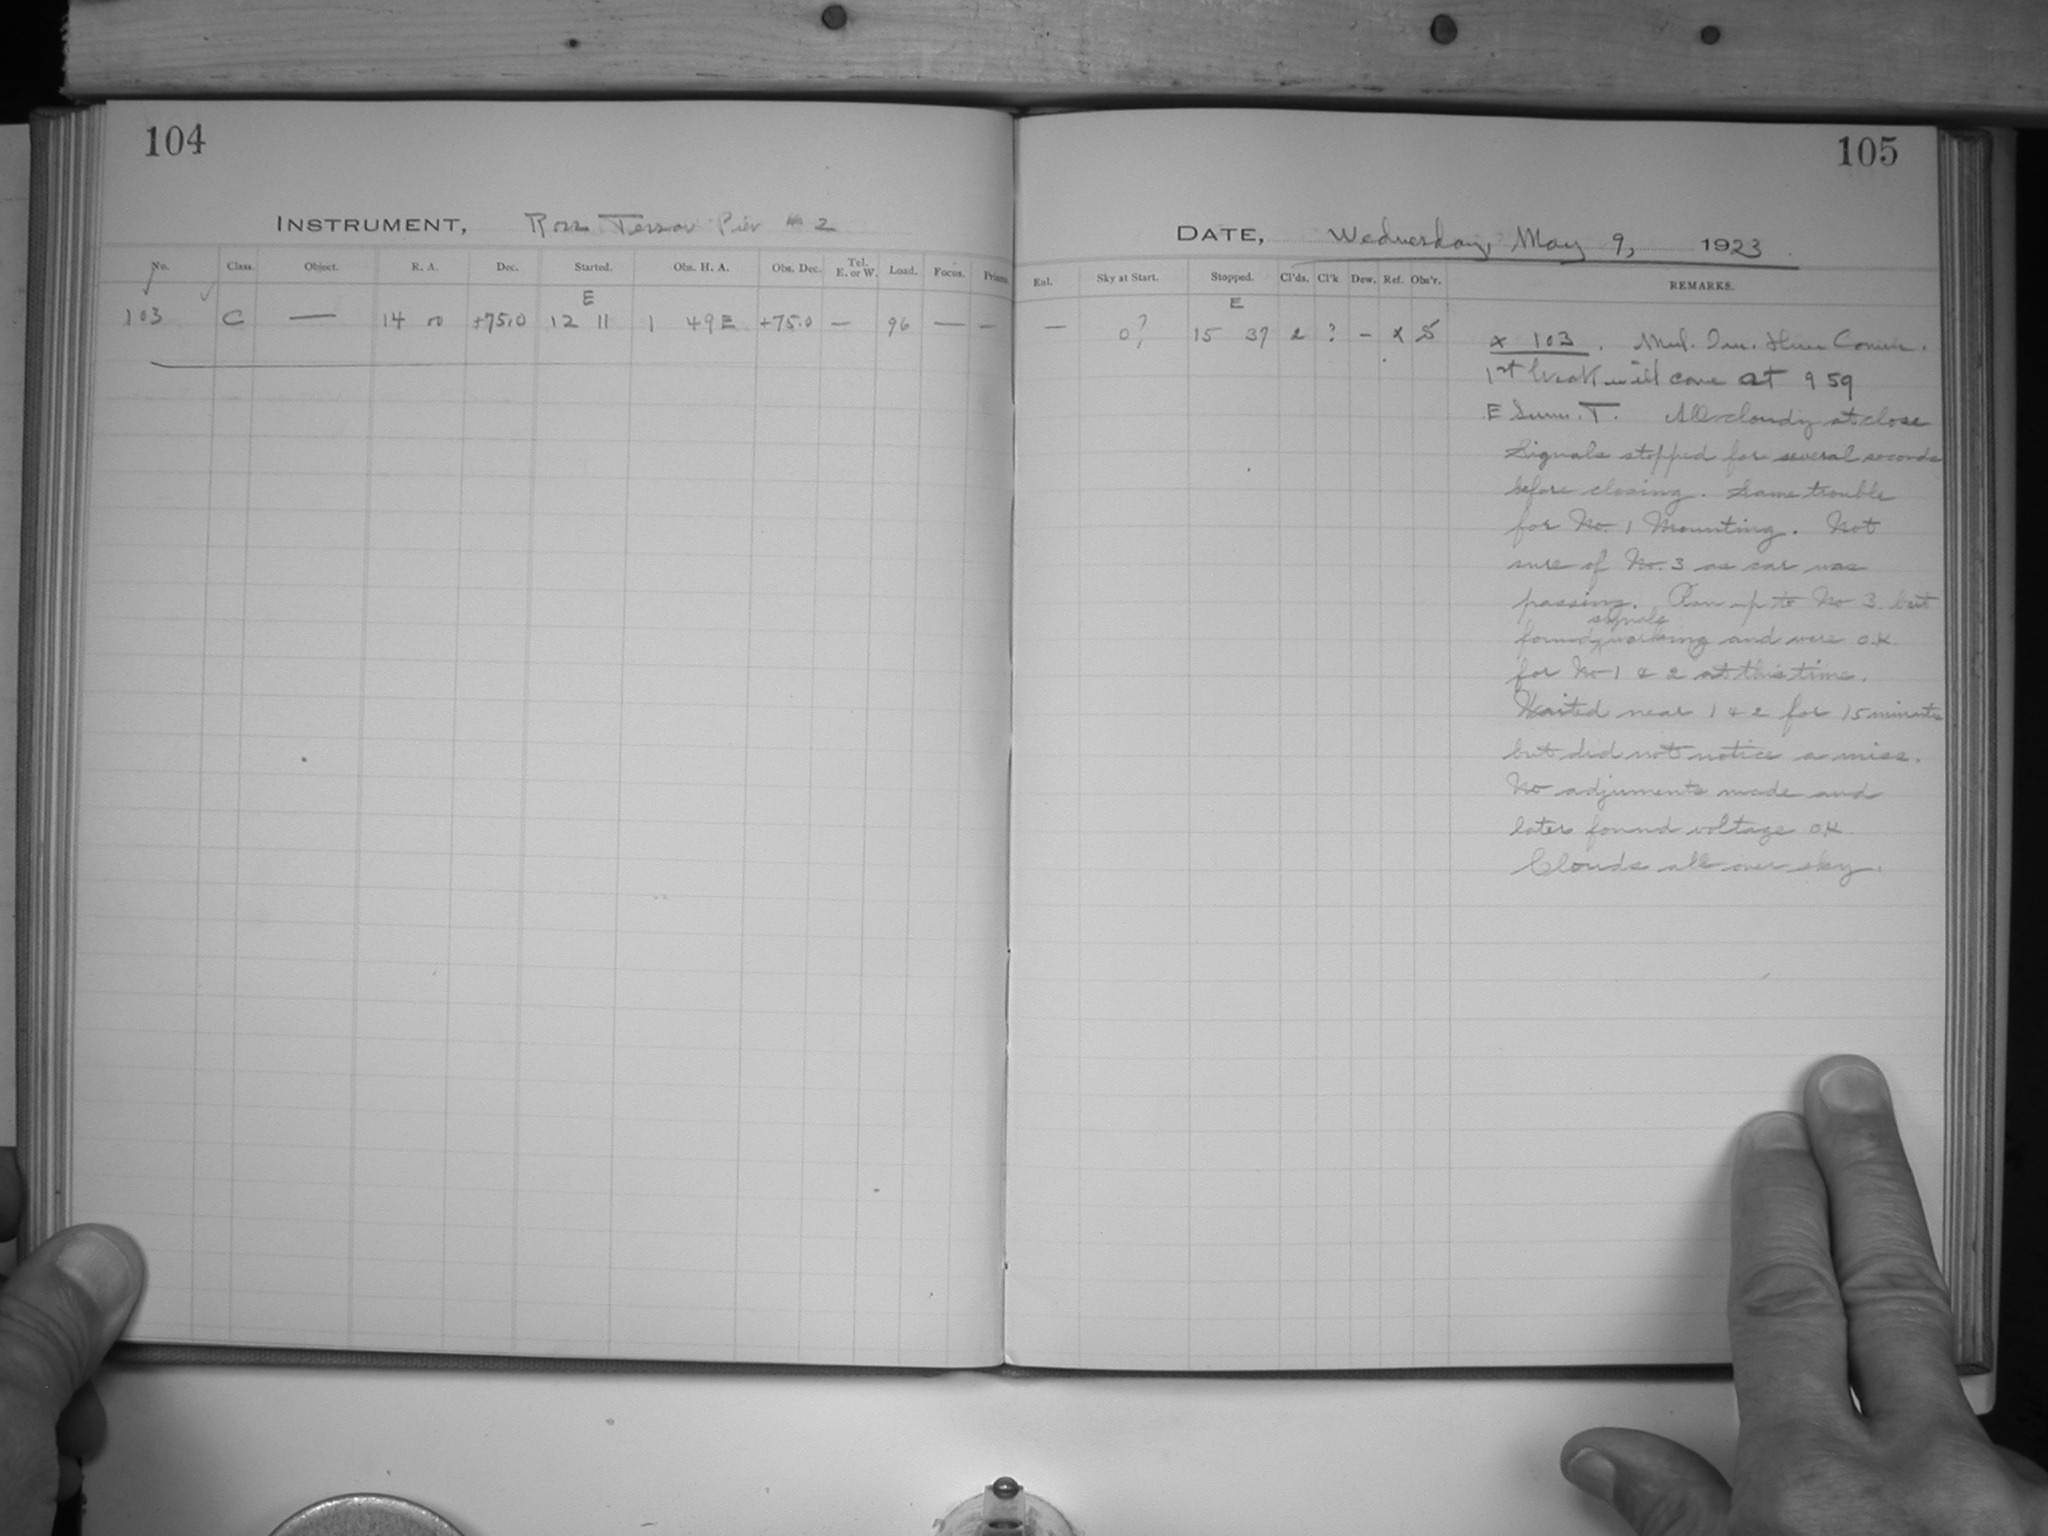 104
INSTRUMENT, Ross Tessar Pier # 2
No. Class. Object. R. A. Dec. Started. Obs. H. A. Obs. Dec. Tel. E. or W. Load. Focus. Prisms.
E
103 C — 14 00 +75.0 12 11 1 49 E +75.0 — 96 — —
105
DATE, Wednesday, May 9, 1923
Eal. Sky at Start. Stopped. Cl'ds. Cl'k Dew. Ref. Obs'r. REMARKS.
E
— 0? 15 37 2 ? — x S
x 103.
1st break will come at 9 59
E Sum. T. All cloudy at close
Signals stopped for several seconds
before closing. Same trouble
for No. 1 Mounting. Not
sure of No. 3 as car was
passing. Ran up to No 3 but
found signals working and were O.K.
for No 1 & 2 at this time.
Waited near 1 & 2 for 15 minutes
but did not notice a miss.
No adjuments made and
later found voltage O.K.
Clouds all over sky.